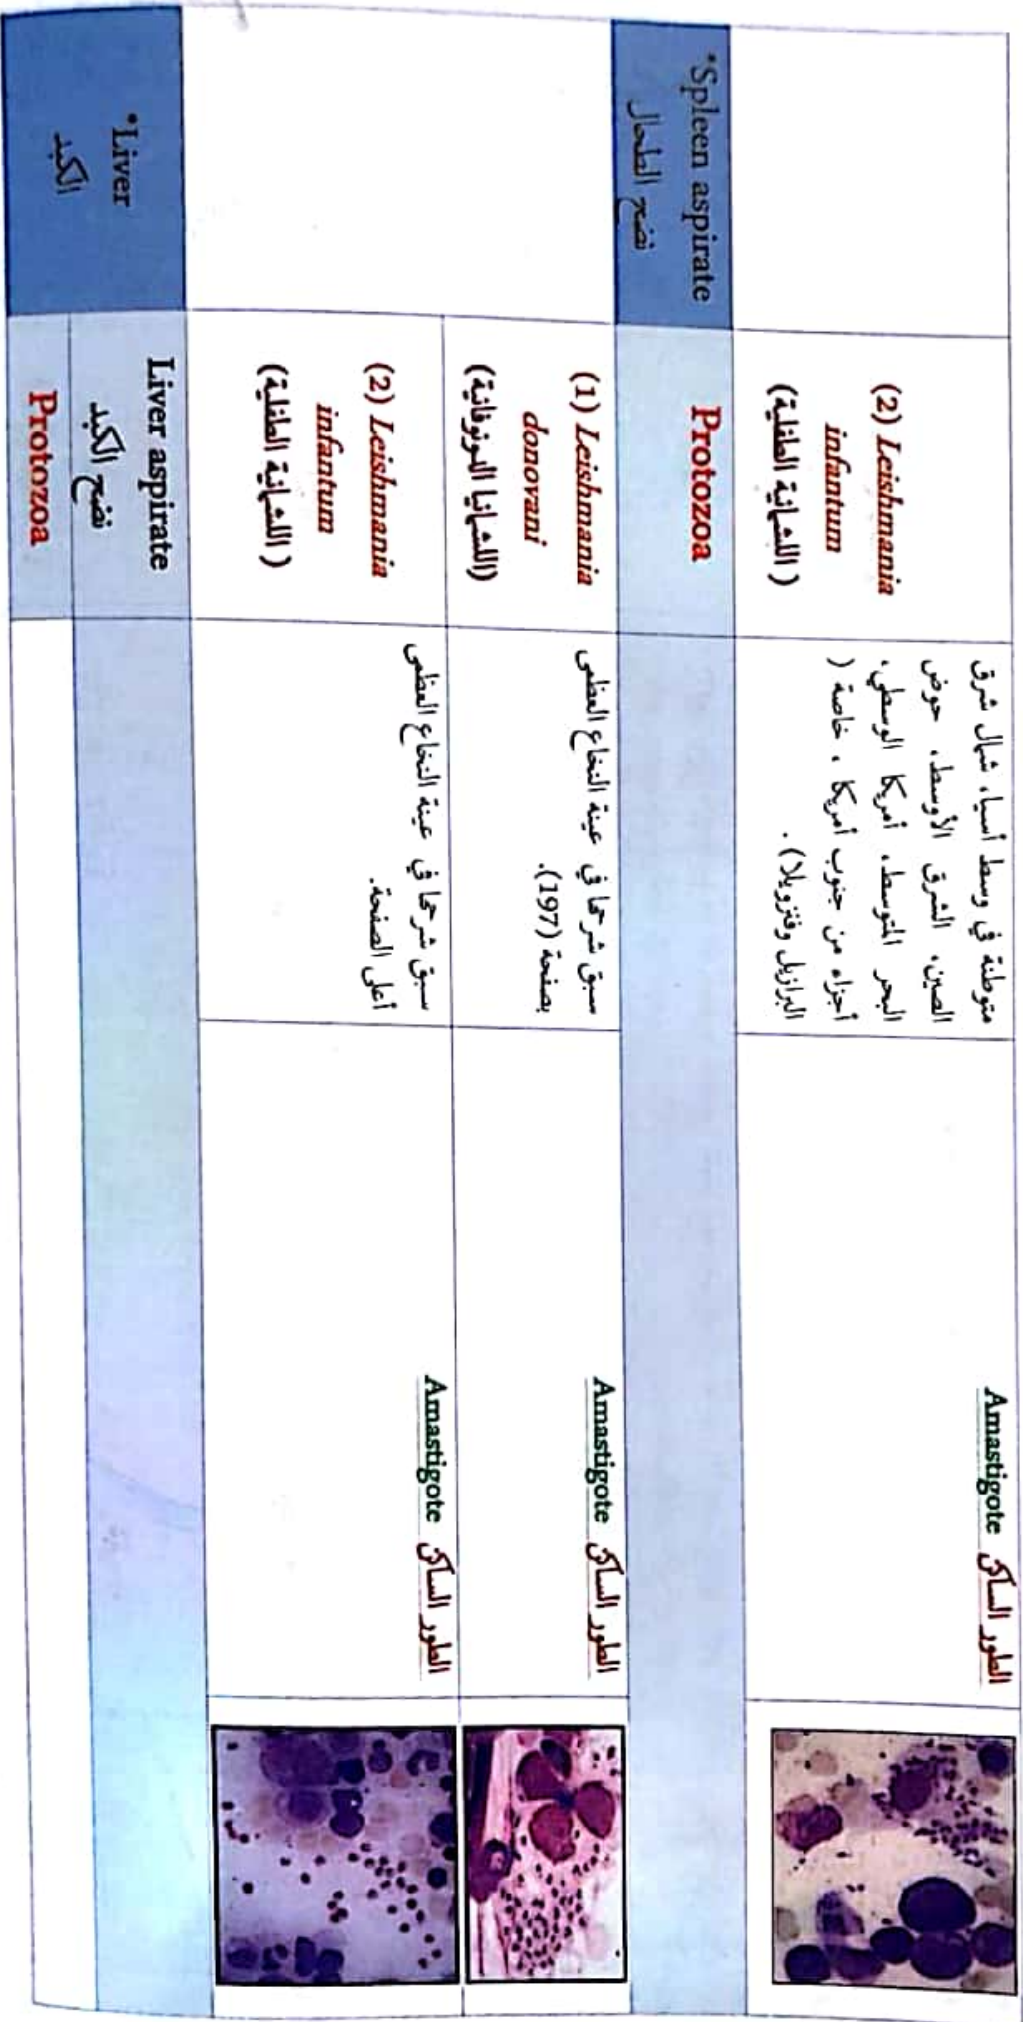 (2) Leishmania
infantum
(اللشمانية الطفلية)
متوطنة في وسط أسيا، شمال شرق
الصين، الشرق الأوسط، حوض
البحر المتوسط، أمريكا الوسطي،
أجزاء من جنوب أمريكا ، خاصة (
البرازيل وفنزويلا).
Amastigote الطور الساكن
*Spleen aspirate
نضح الطحال
Protozoa
(1) Leishmania
donovani
(اللشمانيا الدونوفانية)
سبق شرحها في عينة النخاع العظمى
بصفحة (197).
Amastigote الطور الساكن
(2) Leishmania
infantum
(اللشمانية الطفلية)
سبق شرحها في عينة النخاع العظمى
أعلى الصفحة.
Amastigote الطور الساكن
*Liver
الكبد
Liver aspirate
نضح الكبد
Protozoa